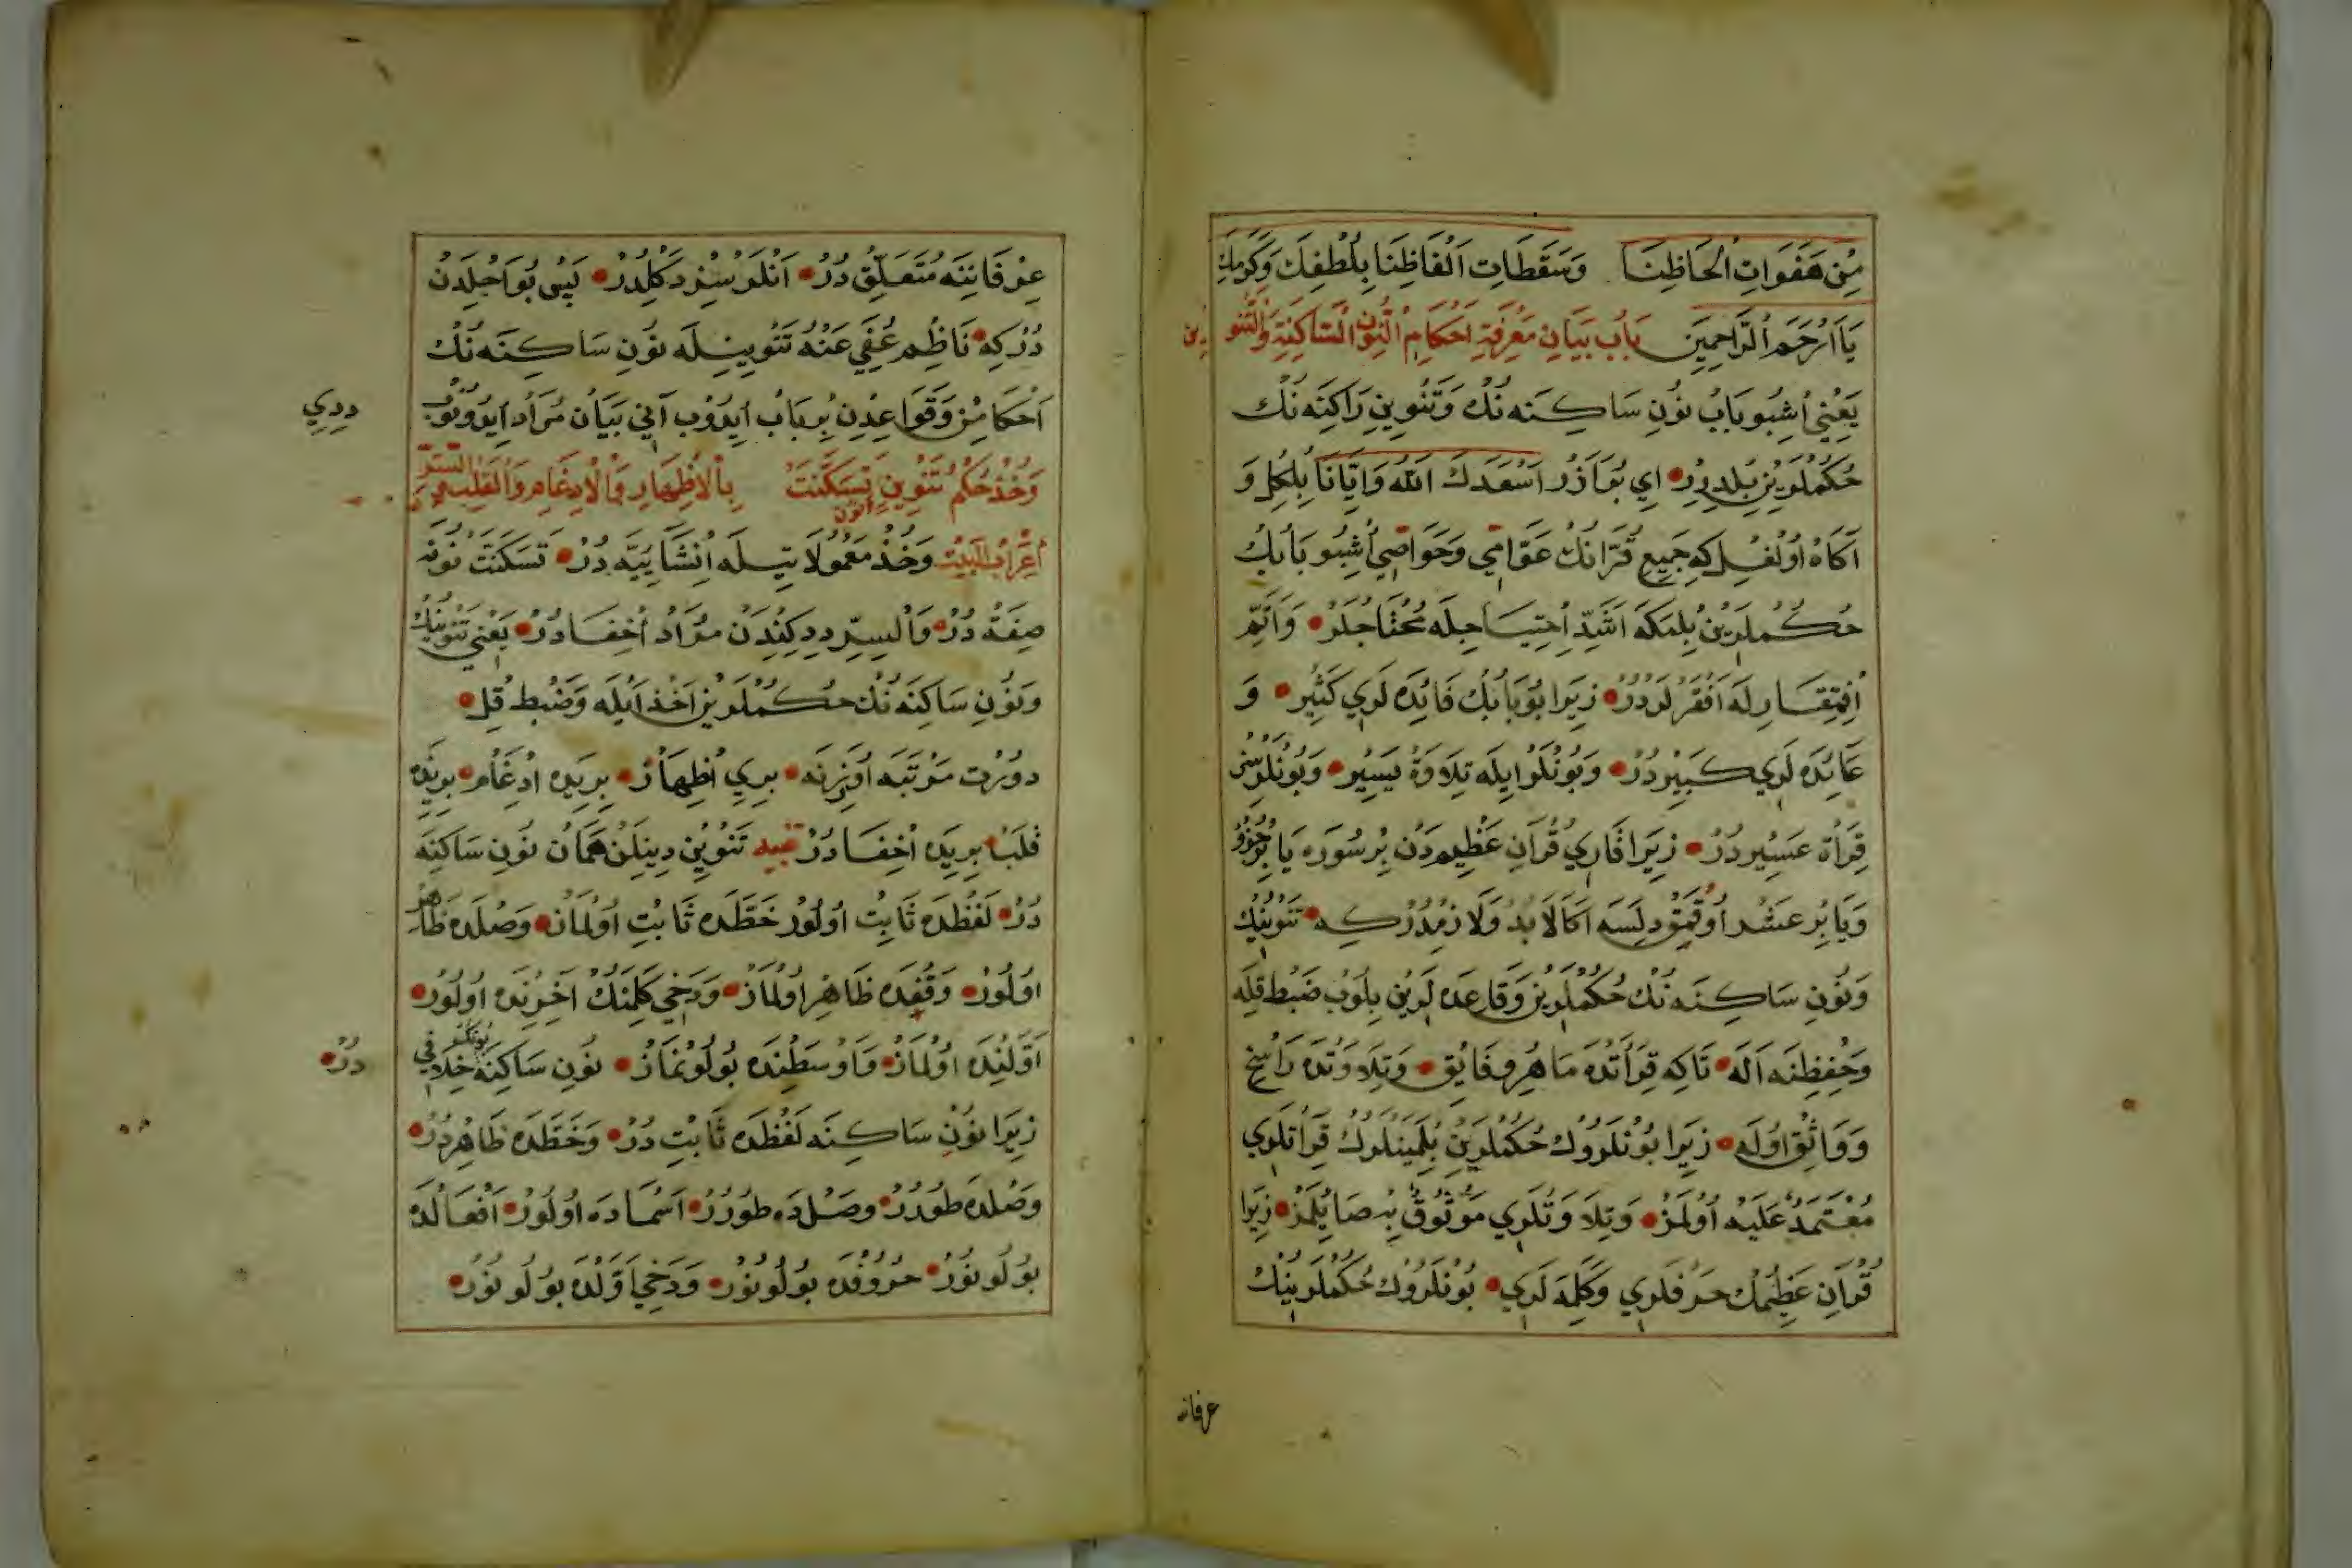 مِنْ هَفَوَاتِ اَلْحَاظِنَا وَسَقَطَاتِ اَلْفَاظِنَا بِلُطْفِكَ وَكَرَمِكَ
يَا اَرْحَمَ الرَّاحِمِينَ بَابُ بَيَانِ مَعْرِفَةِ اَحْكَامِ النُّونِ السَّاكِنَةِ وَالتَّنْوِينِ
يَعْنِي اُشْبُو بَابُ نُونِ سَاكِنَه نُكْ وَتَنْوِينِ رَاكِنَه نُكْ
حُكُمْلَرِينِ بِلْدِرِرْ اِي بُرَادَرْ اَسْعَدَكَ اللّٰهُ وَاِيَّانَا بِلْكِلْ وَ
آكَاهْ اُولْغِلْ كِه جَمِيعِ قُرَّانُكْ عَوَامِّي وَخَوَاصِّي اُشْبُو بَابُكْ
حُكُملَرِينْ بِلْمَكَه اَشَدِّ اِحْتِيَاجِلَه مُحْتَاجْلَرْ وَاَتَمِّ
اِفْتِقَارِلَه اَفْقَرْلَرْدُرْ زِيرَا بُو بَابُكْ فَائِدَه لَرِي كَثِيرْ وَ
عَائِدَه لَرِي كَبِيرْدُرْ وَبُونْلَرْ اِيلَه تِلَاوَةْ يَسِيرْ وَبُونْلَرْسِزْ
قِرَأَةْ عَسِيرْدُرْ زِيرَا قَارِي قُرْآنِ عَظِيمْدَنْ بِرْ سُورَه يَا بِرْ جُزْؤْ
وَيَا بِرْ عَشْر اُوقُمَقْ دِلَسَه اَكَا لَابُدْ وَلَازِمْدُرْ كِه تَنْوِينُكْ
وَنُونِ سَاكِنَه نُكْ حُكُمْلَرِينْ وَقَاعِدَه لَرِينْ بِلُوبْ ضَبْطْ قِلَه
وَحِفْظِنَه اَلَه تَاكِه قِرَأَتْدَه مَاهِر وفَائِقْ وَتِلَاوَتْدَه رَاسِخْ
وَوَاثِقْ اُولَه زِيرَا بُونْلَرُوكْ حُكُمْلَرِينْ بِلْمَيَنْلَرُكْ قِرَأَتْلَرِي
مُعْتَمَدٌ عَلَيْه اُولْمَزْ وَتِلَاوَتْلَرِي مَوْثُوقٌ بِه صَايِلْمَزْ زِيرَا
قُرْآنِ عَظِيمُكْ حَرْفْلَرِي وَكَلِمَه لَرِي بُونْلَرُوكْ حُكُمْلَرِينُكْ
عرفانه
عِرْفَانِنَه مُتَعَلِّقْ دُرْ اَنْلَرْسِزْ دَكِلْدُرْ بَسْ بُو اَجْلِدَنْ
دُرْ كِه نَاظِم عُفِيَ عَنْهُ تَنْوِينِلَه نُونِ سَاكِنَه نُكْ
اَحْكَامِنْ وَقَوَاعِدِنْ بِرْ بَابْ اِيدُوبْ آنِي بَيَانْ مُرَادْ اِيدُونُوبْ
دِدِي
وَخُذْ حُكْمَ تَنْوِينٍ وَنُونٍ تَسَكَّنَتْ بِالْاِظْهَارِ وَالْاِدْغَامِ وَالْقَلْبِ وَالسِّرِّ
اِعْرَابُ الْبَيْتِ وَخُذْ مَعْمُولَاتِيلَه اِنْشَائِيَّه دُرْ تَسَكَّنَتْ نُونَه
صِفَةْ دُرْ وَالسِّرِّ دِدِكِنْدَنْ مُرَادْ اِخْفَادُرْ يَعْنِي تَنْوِينُكْ
وَنُونِ سَاكِنَه نُكْ حُكُمْلَرِينْ اَخْذ اَيلَه وَضَبْط قِلْ
دورْت مَرْتَبَه اُوزِرِنَه بِرِي اِظْهَارْ بِرِيدَه اِدْغَامْ بِرِيدَه
قَلْبْ بِرِيدَه اِخْفَادُرْ تنبيه تَنْوِينْ دِينِلَنْ هَمَانْ نُونِ سَاكِنَه
دُرْ لَفْظْدَه ثَابِتْ اُولُورْ خَطَّدَه ثَابِتْ اُولْمَازْ وَصْلْدَه ظَاهِرْ
اُولُورْ وَقْفْدَه ظَاهِرْ اُولْمَازْ وَدَخِي كَلِمَنُكْ آخِرِنْدَه اُولُورْ
اَوَّلِنْدَه اُولْمَازْ وَاُوسَطِنْدَه بُولُونْمَازْ نُونِ سَاكِنَه بُونُكْ خِلَافِي
دُرْ
زِيرَا نُونِ سَاكِنَه لَفْظْدَه ثَابِتْ دُرْ وَخَطَّدَه ظَاهِرْدُرْ
وَصْلْدَه طُورُرْ وَصْلْدَه طُورُرْ اَسْمَادَه اُولُورْ اَفْعَالْدَه
بُولُونُورْ حُرُوفْدَه بُولُونُورْ وَدَخِي اَوَّلْدَه بُولُونُورْ